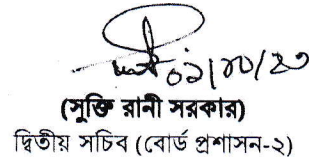 ০১/১০/২৩
(সুক্তি রানী সরকার)
দ্বিতীয় সচিব (বোর্ড প্রশাসন-২)